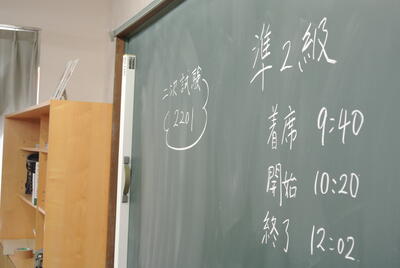 準2級
二次試験
2201
着席 9:40
開始 10:20
終了 12:02